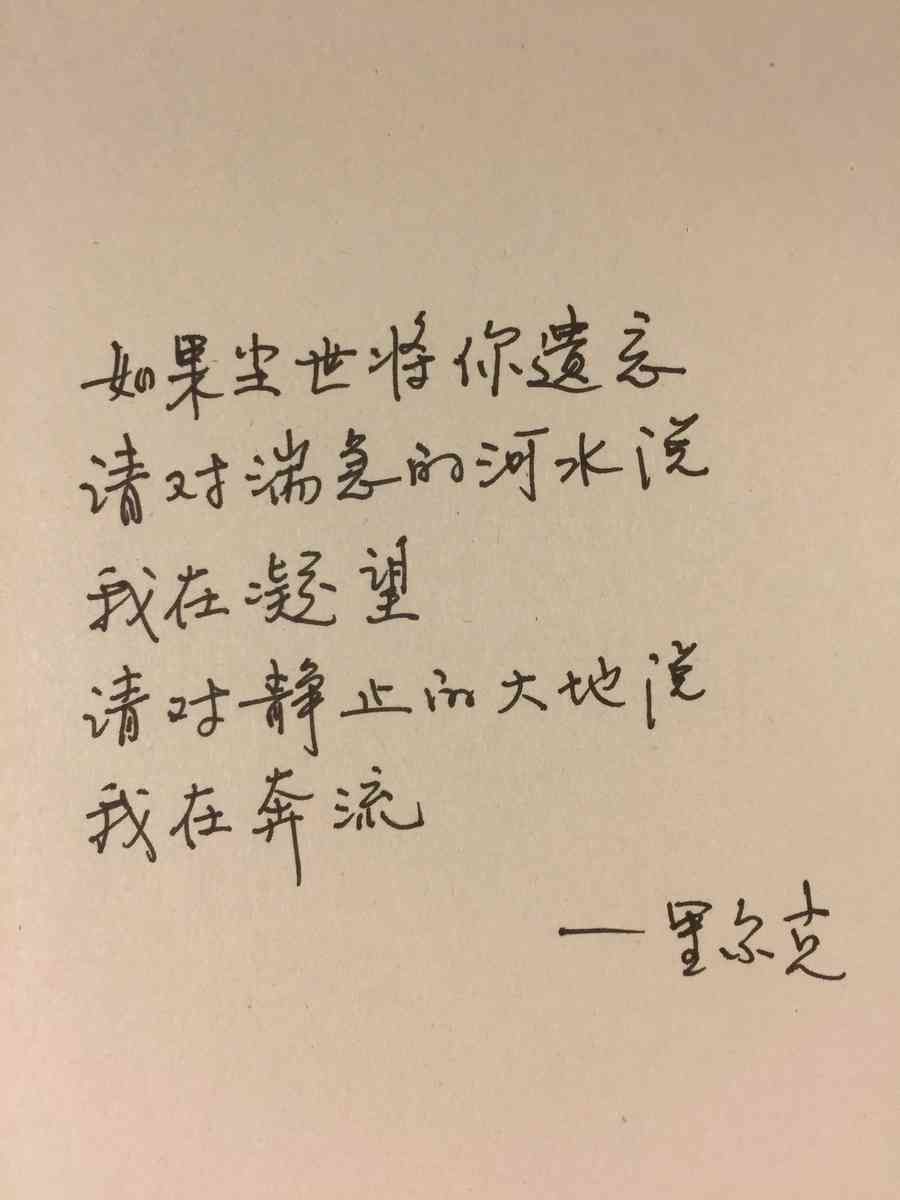 如果尘世将你遗忘
请对湍急的河水说
我在凝望
请对静止的大地说
我在奔流
——里尔克